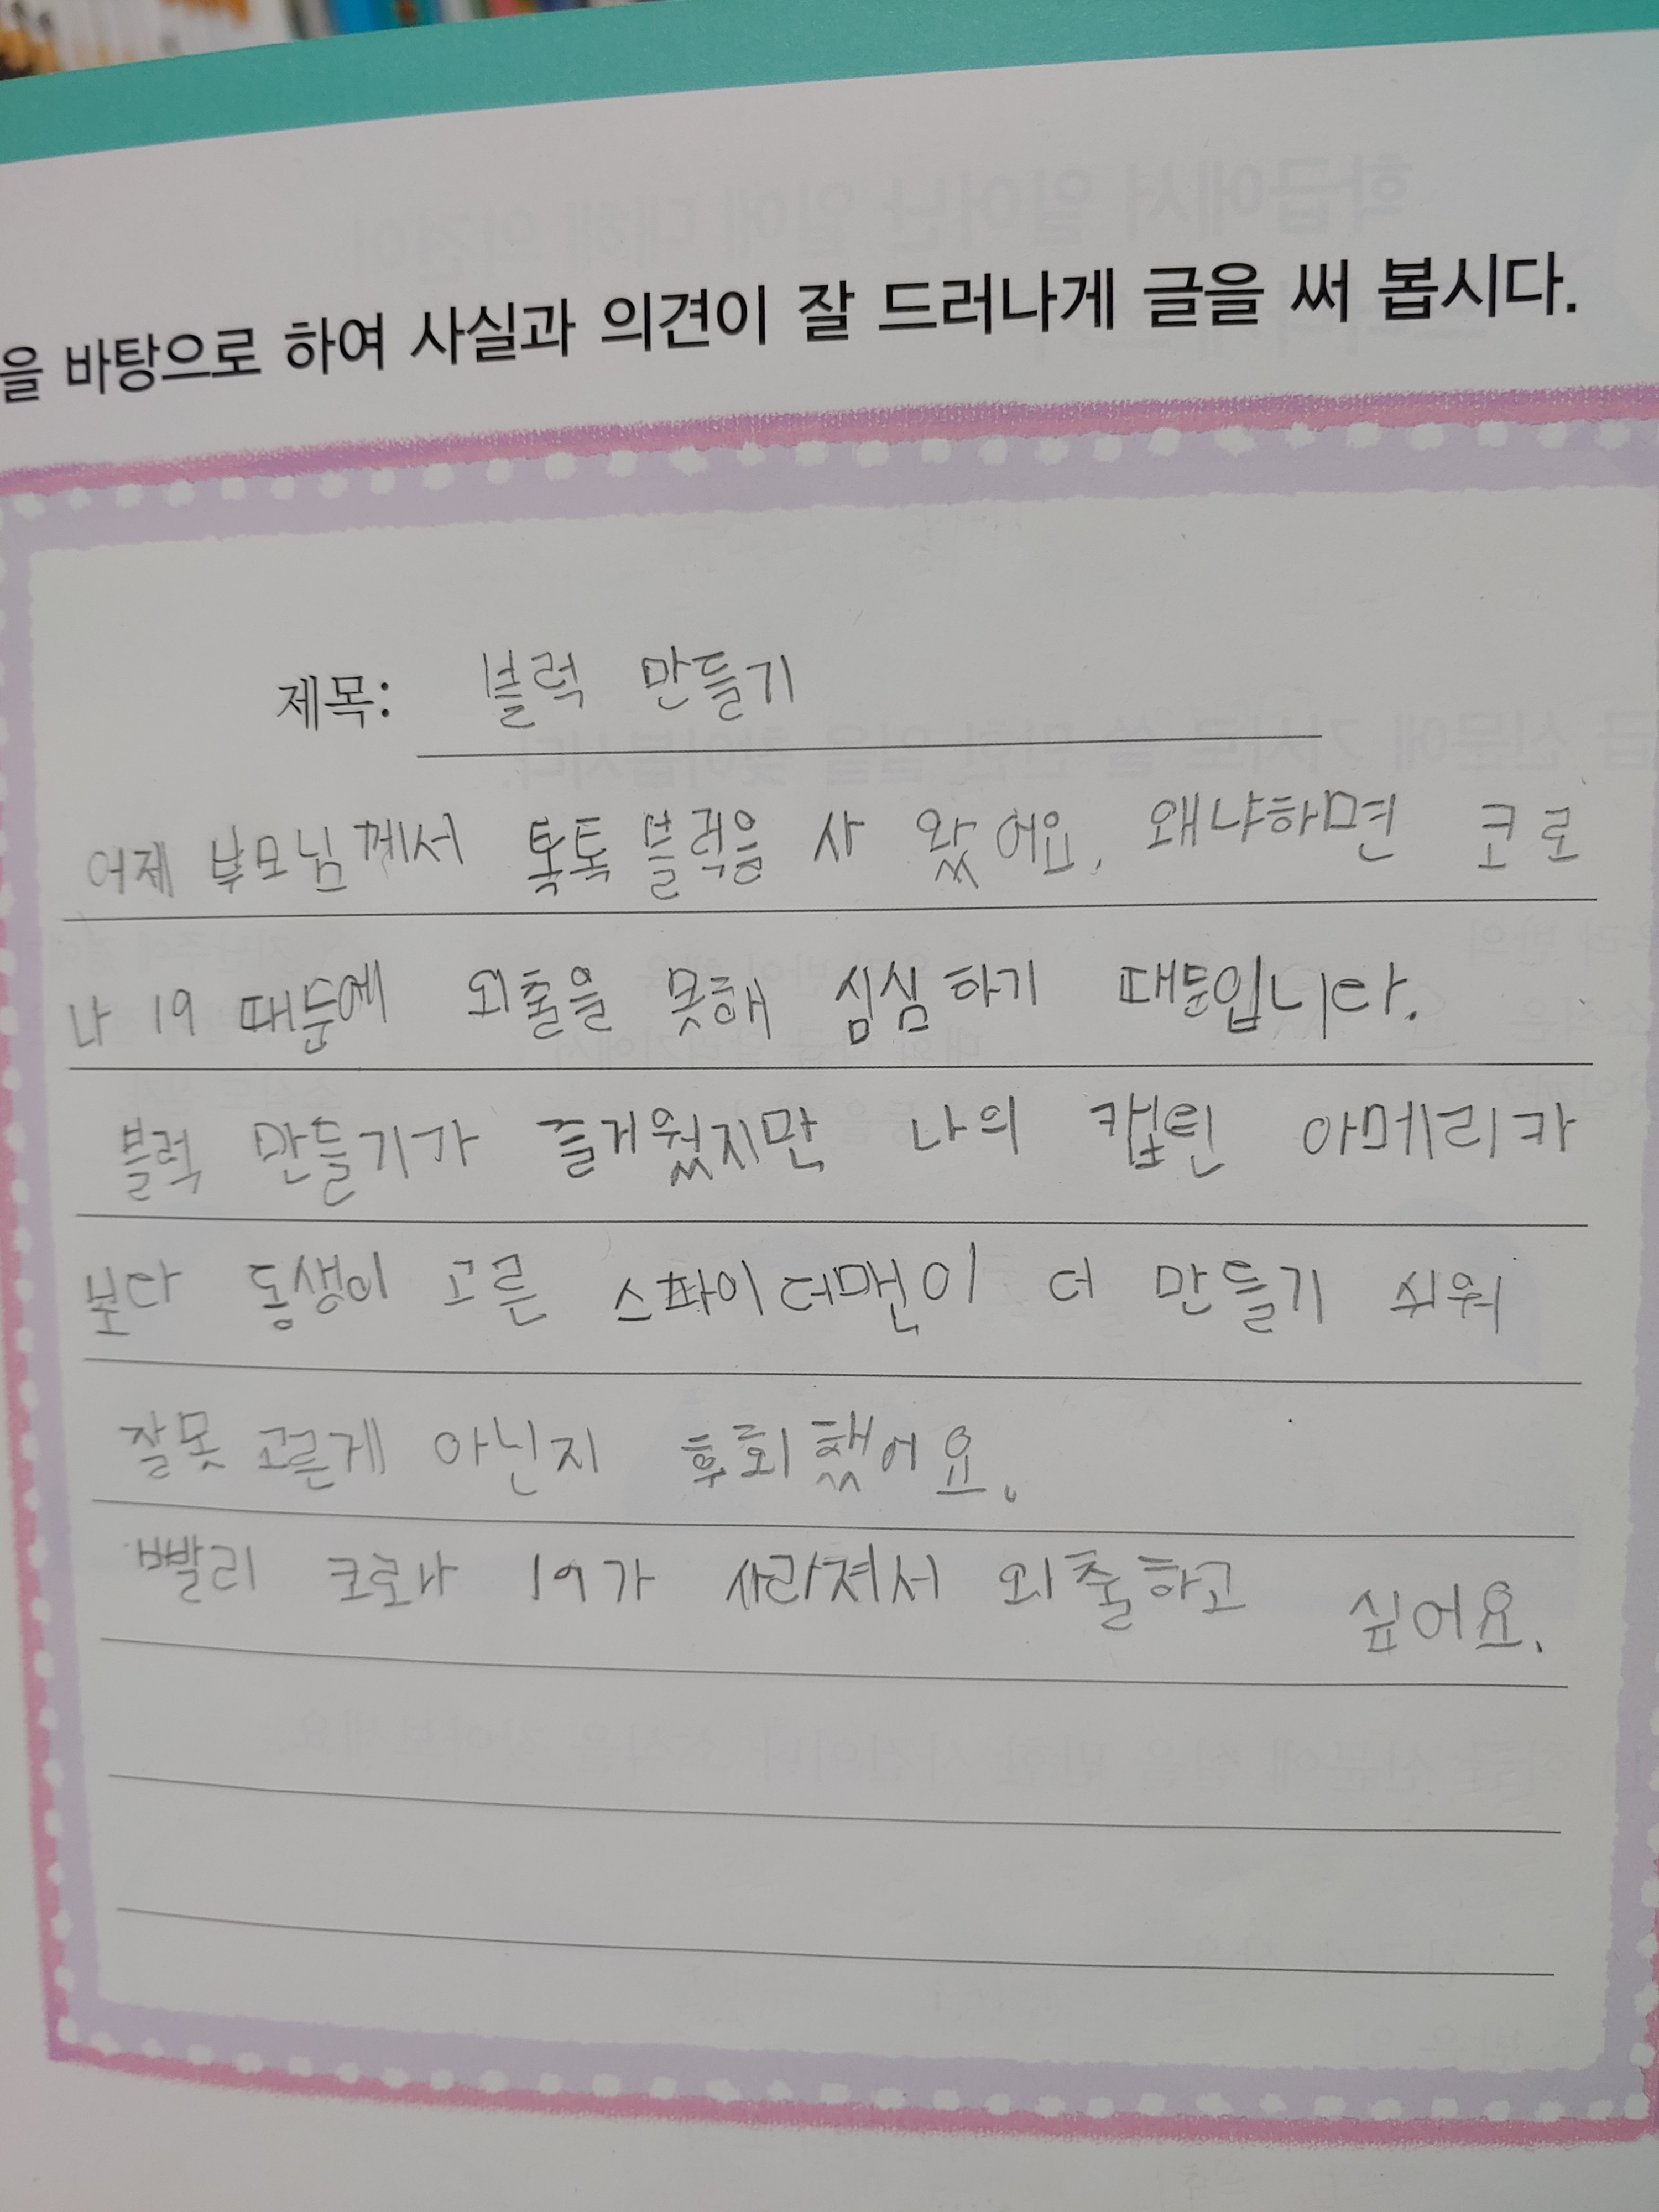 을 바탕으로 하여 사실과 의견이 잘 드러나게 글을 써 봅시다.
제목: 블럭 만들기
어제 부모님께서 톡톡 블럭을 사 왔어요. 왜냐하면 코로
나 19 때문에 외출을 못해 심심하기 때문입니다.
블럭 만들기가 즐거웠지만 나의 캡틴 아메리카
보다 동생이 고른 스파이더맨이 더 만들기 쉬워
잘못 고른게 아닌지 후회했어요.
빨리 코로나 19가 사라져서 외출하고 싶어요.